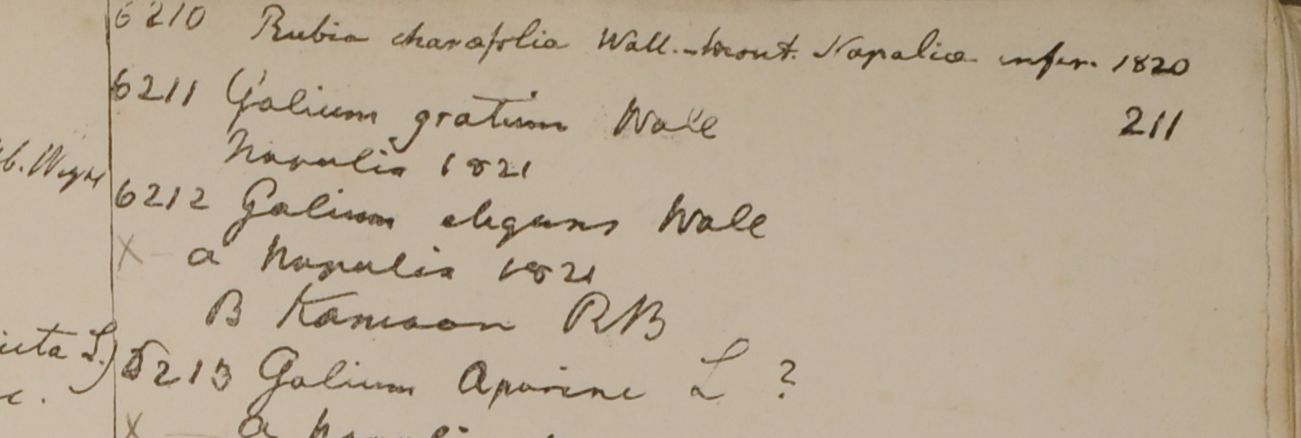 6210 Rubia charæfolia Wall. mont. Napaliæ infer. 1820
6211 Galium gratum Wall 211
Napalia 1821
b. Wight
6212 Galium elegans Wall
X a Napalia 1821
B Kamaon RB
L.)
6213 Galium Aparine L ?
c.
X — a